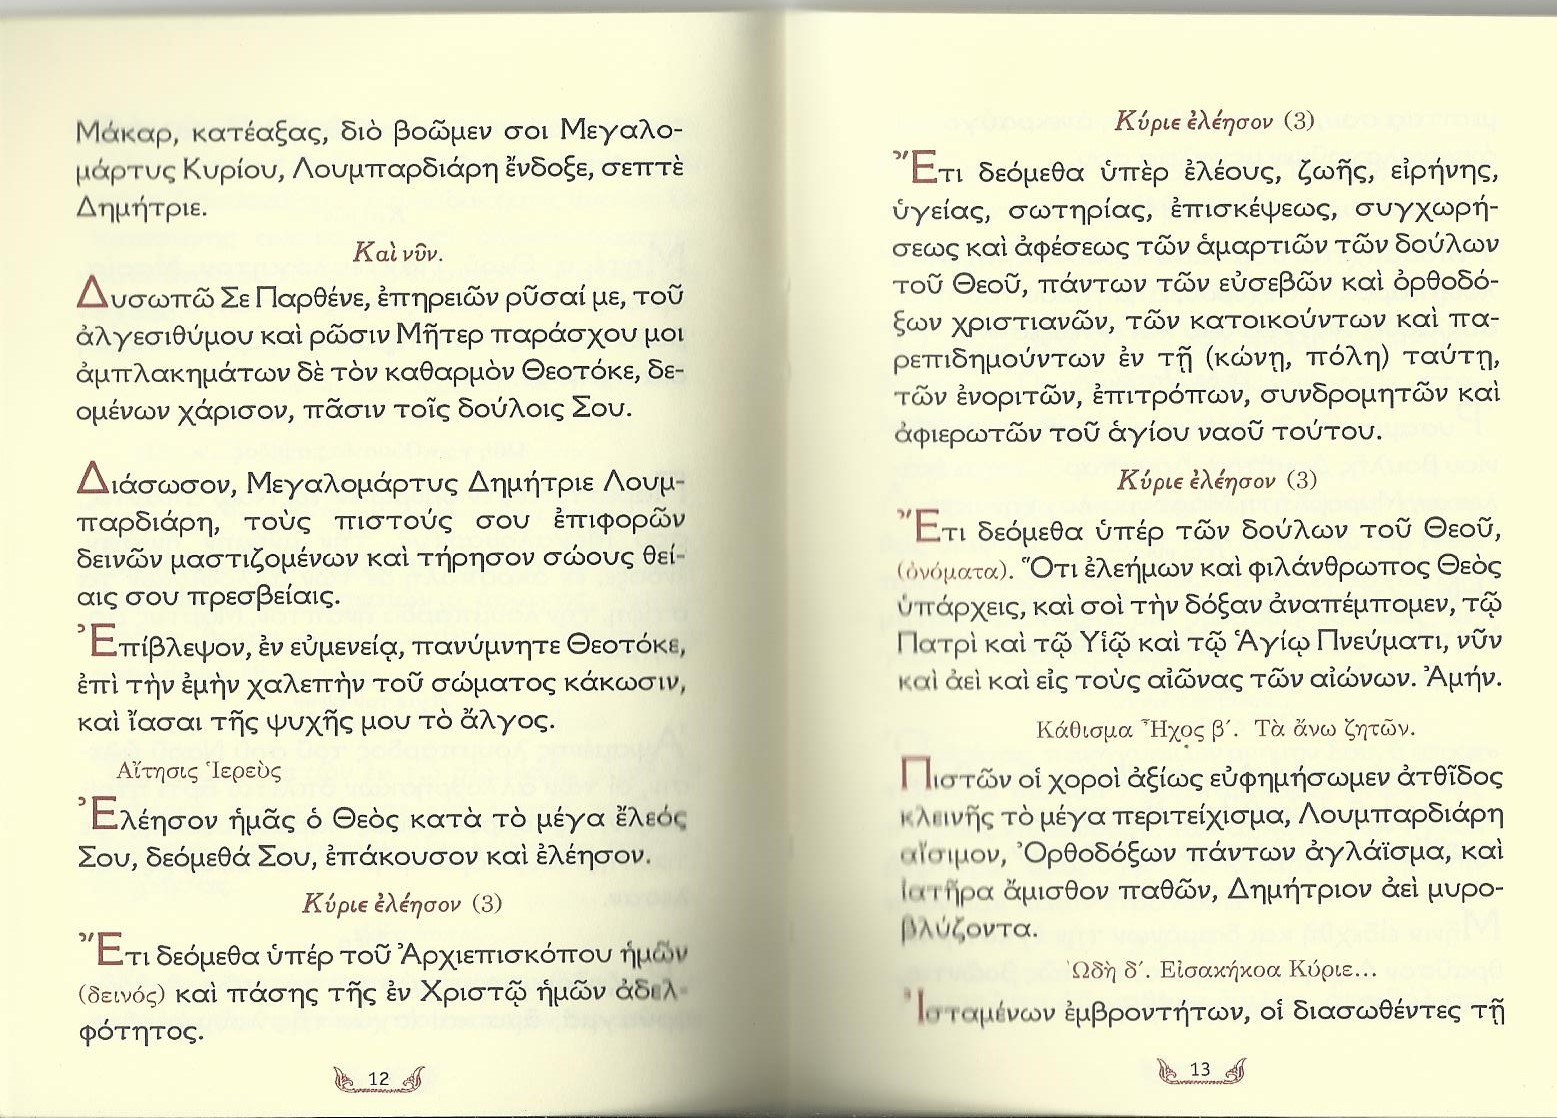 Μάκαρ, κατέαξας, διὸ βοῶμεν σοι Μεγαλο-
μάρτυς Κυρίου, Λουμπαρδιάρη ἔνδοξε, σεπτὲ
Δημήτριε.
Καὶ νῦν.
Δυσωπῶ Σε Παρθένε, ἐπηρειῶν ρῦσαί με, τοῦ
ἀλγεσιθύμου καὶ ρῶσιν Μῆτερ παράσχου μοι
ἀμπλακημάτων δὲ τὸν καθαρμὸν Θεοτόκε, δε-
ομένων χάρισον, πᾶσιν τοῖς δούλοις Σου.
Διάσωσον, Μεγαλομάρτυς Δημήτριε Λουμ-
παρδιάρη, τοὺς πιστούς σου ἐπιφορῶν
δεινῶν μαστιζομένων καὶ τήρησον σώους θεί-
αις σου πρεσβείαις.
Ἐπίβλεψον, ἐν εὐμενείᾳ, πανύμνητε Θεοτόκε,
ἐπὶ τὴν ἐμὴν χαλεπὴν τοῦ σώματος κάκωσιν,
καὶ ἴασαι τῆς ψυχῆς μου τὸ ἄλγος.
Αἴτησις Ἱερεὺς
Ἐλέησον ἡμᾶς ὁ Θεὸς κατὰ τὸ μέγα ἔλεός
Σου, δεόμεθά Σου, ἐπάκουσον καὶ ἐλέησον.
Κύριε ἐλέησον (3)
Ἔτι δεόμεθα ὑπὲρ τοῦ Ἀρχιεπισκόπου ἡμῶν
(δεινός) καὶ πάσης τῆς ἐν Χριστῷ ἡμῶν ἀδελ-
φότητος.
12
Κύριε ἐλέησον (3)
Ἔτι δεόμεθα ὑπὲρ ἐλέους, ζωῆς, εἰρήνης,
ὑγείας, σωτηρίας, ἐπισκέψεως, συγχωρή-
σεως καὶ ἀφέσεως τῶν ἁμαρτιῶν τῶν δούλων
τοῦ Θεοῦ, πάντων τῶν εὐσεβῶν καὶ ὀρθοδό-
ξων χριστιανῶν, τῶν κατοικούντων καὶ πα-
ρεπιδημούντων ἐν τῇ (κώνῃ, πόλη) ταύτῃ,
τῶν ἐνοριτῶν, ἐπιτρόπων, συνδρομητῶν καὶ
ἀφιερωτῶν τοῦ ἁγίου ναοῦ τούτου.
Κύριε ἐλέησον (3)
Ἔτι δεόμεθα ὑπέρ τῶν δούλων τοῦ Θεοῦ,
(ὀνόματα). Ὅτι ἐλεήμων καὶ φιλάνθρωπος Θεὸς
ὑπάρχεις, καὶ σοὶ τὴν δόξαν ἀναπέμπομεν, τῷ
Πατρὶ καὶ τῷ Υἱῷ καὶ τῷ Ἁγίῳ Πνεύματι, νῦν
καὶ ἀεὶ καὶ εἰς τοὺς αἰῶνας τῶν αἰώνων. Ἀμήν.
Κάθισμα Ἦχος β´. Τὰ ἄνω ζητῶν.
Πιστῶν οἱ χοροὶ ἀξίως εὐφημήσωμεν ἀτθῖδος
κλεινῆς τὸ μέγα περιτείχισμα, Λουμπαρδιάρη
αἴσιμον, Ὀρθοδόξων πάντων ἀγλάϊσμα, καὶ
ἰατῆρα ἄμισθον παθῶν, Δημήτριον ἀεὶ μυρο-
βλύζοντα.
Ὠδὴ δ´. Εἰσακήκοα Κύριε...
Ἱσταμένων ἐμβροντήτων, οἱ διασωθέντες τῇ
13